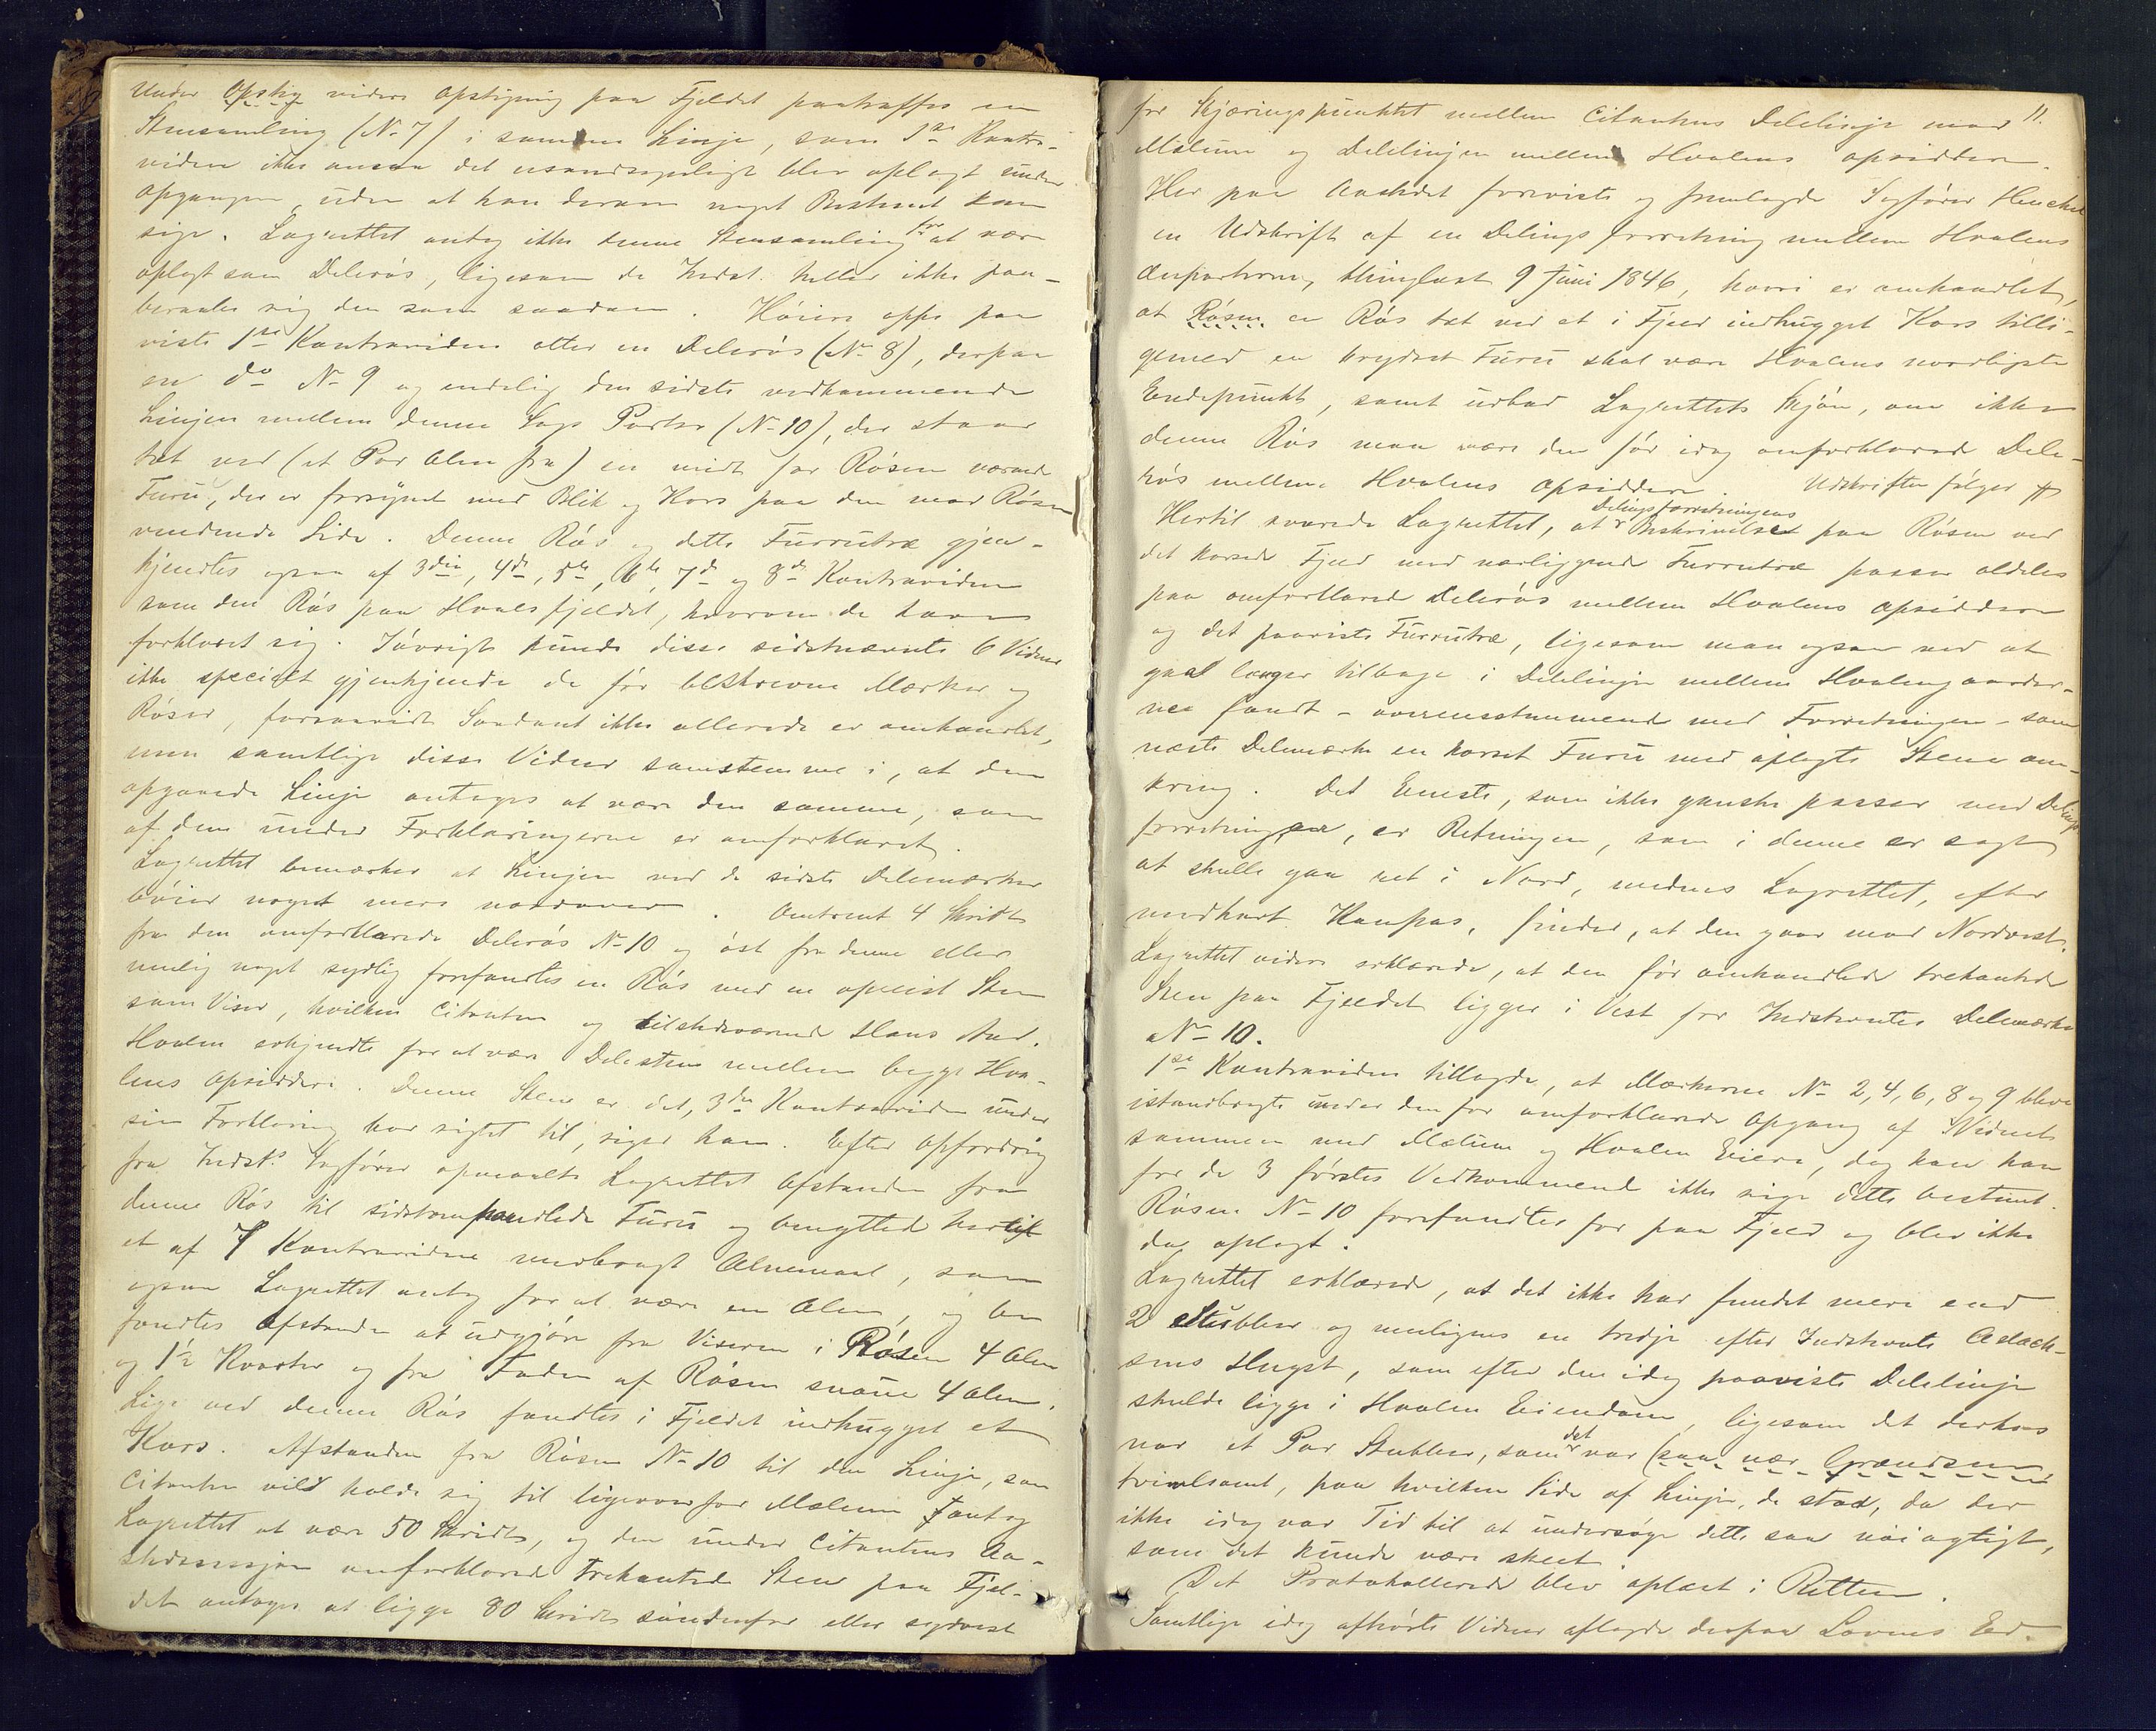 Under Opstig videre Opstigning paa Fjeldet paatraffes en
Stensamling (No 7) i samme Linje, som 1ste Kontra-
vidne ikke ansaa det usandsynligt blev oplagt under
Opgangen, uden at han derom noget Bestemt kan
sige. Lagrettet antog ikke denne Stensamling for at være
oplagt som Delerøs, ligesom de Indst. heller ikke paa-
beraabte sig den som saadan. Høiere oppe paa
viste 1ste Kontravidne atter en Delerøs (No 8), derpaa
en do No 9 og endelig den sidste vedkommende
Linjen mellem denne Sags Parter (No 10), der staar
tæt ved (et Par Alen fra) en midt for Røsen værende
Furu, der er forsynet med Blik og Kors paa den mod Røsen
vendende Side. Denne Røs og dette Furrutræ gjen-
kjendtes ogsaa af 3die, 4de, 5te, 6te 7de og 8de Kontravidne
som den Røs paa Hvalsfjeldet, hvorom de have
forklaret sig. Iøvrigt kunde disse sidstnævnte 6 Vidner
ikke specielt gjenkjende de før beskrevne Mærker og
Røser, forsaavidt Saadant ikke allerede er omhandlet,
men samtlige disse Vidner samstemme i, at den
opgaaede Linje antages at være den samme, som
af dem under Forklaringerne er omforklaret.
Lagrettet bemærker at Linjen ved de sidste Delemærker
bøier noget mere nordover. Omtrent 4 Skridt
fra den omforklarede Delerøs No 10 og øst fra denne eller
muligt noget sydlig forefandtes en Røs med en opreist Sten
som Viser, hvilken Citanten og tilstedeværende Hans And.
Hvalen erkjendte for at være Delesten mellem begge Hva-
lens Opsiddere. Denne Sten er det, 3die Kontravidne under
sin Forklaring har sigtet til, siger han. Efter Opfordring
fra Indsts Sagfører opmaalte Lagrettet Afstanden fra
denne Røs til sidstomhandlede Furu og benyttede hertil
et af 7 Kontravidne medbragt Alnemaal, som
ogsaa Lagrettet antog for at være en Alen, og be
fandtes Afstanden at udgjøre fra Viseren i Røsen 4 Alen
og 1½ Kvarter og fra Foden af Røsen snaue 4 Alen.
Lige ved denne Røs fandtes i Fjeldet indhugget et
Kors. Afstanden fra Røsen No 10 til den Linje, som
Citanten vild holde sig til ligeoverfor Mælum antog
Lagrettet at være 50 Skridt, og den under Citantens Aa-
stedsmøde omforklarede trekantede Sten paa Fjel-
det antages at ligge 80 Skridt søndenfor eller sydvest
11.
for Skjæringspunktet mellem Citantens Delelinje mod
Mælum og Delelinjen mellem Hvalens Opsiddere.
Her paa Aastedet foreviste og fremlagde Sagfører Henchel
en Udskrift af en Delingsforretning mellem Hvalens
Anparterne, thinglæst 9 Juni 1846, hvori er omhandlet,
at Røsen en Røs tæt ved et i Fjeld indhugget Kors tilli-
gemed en krydset Furu skal være Hvalens nordligste
Endepunkt, samt udbad Lagrettets Skjøn, om ikke
denne Røs maa være den før idag omforklarede Dele-
røs mellem Hvalens Opsiddere. Udskriften følger
Hertil svarede Lagrettet, at Delingsforretningens Beskrivelse paa Røsen ved
det korsede Fjeld med nærliggende Furrutræ passer aldeles
paa omforklarede Delerøs mellem Hvalens Opsiddere
og det paaviste Furrutræ, ligesom man ogsaa ved at
gaa længer tilbage i Delelinjen mellem Hvalengaarder-
nes fandt - overensstemmende med Forretningen - som
næste Delemærke en korset Furu med oplagte Stene om-
kring. Det Eneste, som ikke ganske passer med Delings
forretningen, er Retningen, som i denne er sagt
at skulle gaa ret i Nord, medens Lagrettet, efter
medhavt Kompas, finder, at den gaar mod Nordvest.
Lagrettet videre erklærede, at den før omhandlede trekantede
Sten paa Fjeldet ligger i Vest for Indstevntes Delemærke
No 10.
1ste Kontravidne tillagde, at Mærkerne No 2, 4, 6, 8 og 9 bleve
istandbragte under den før omforklarede Opgang af Vidnet
sammen med Mælum og Hvalen Eiere, dog kan han
for de 3 førstes Vedkommende ikke sige dette bestemt.
Røsen No 10 forefandtes før paa Fjeld og blev ikke
da oplagt.
Lagrettet erklærede, at det ikke har fundet mere end
2 Stubber og muligens en tredje efter Indstevnte Aslack-
sens Hugst, som efter den idag paaviste Delelinje
skulde ligge i Hvalen Eiendom, ligesom det derhos
var et Par Stubber, som det var (saa nær Grændsen
tvivlsomt, paa hvilken Side af Linjen de stod, da der
ikke idag var Tid til at undersøge dette saa nøiagtigt,
som det kunde være skeet.
Det Protokollerede blev oplæst i Retten.
Samtlige idag afhørte Vidner aflagde derpaa Lovens Ed.